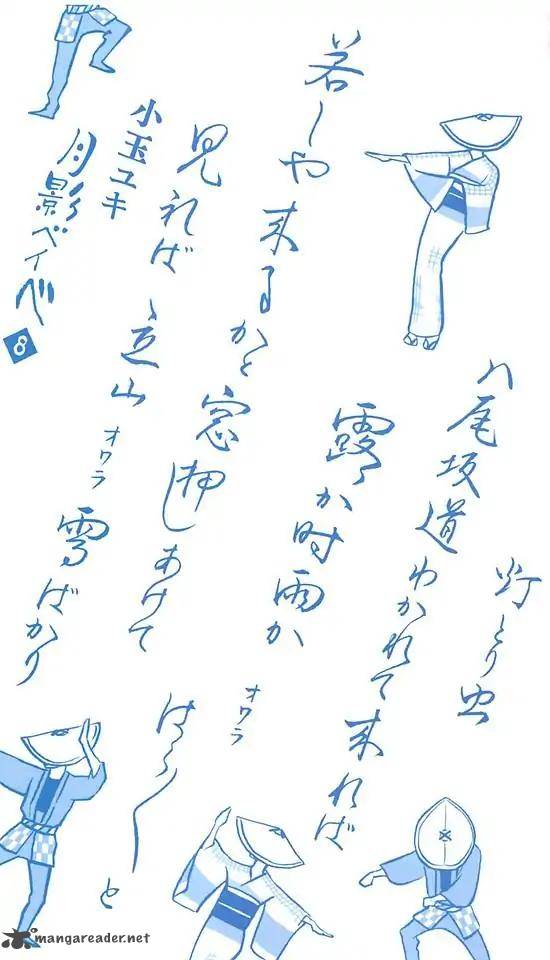 灯とり虫
八尾坂道わかれて来れば
露か時雨か
オワラ
はら〳〵と
若しや来るかと窓押しあけて
見れば、立山
オワラ
雪ばかり
小玉ユキ
月影ベイベ
8
mangareader.net